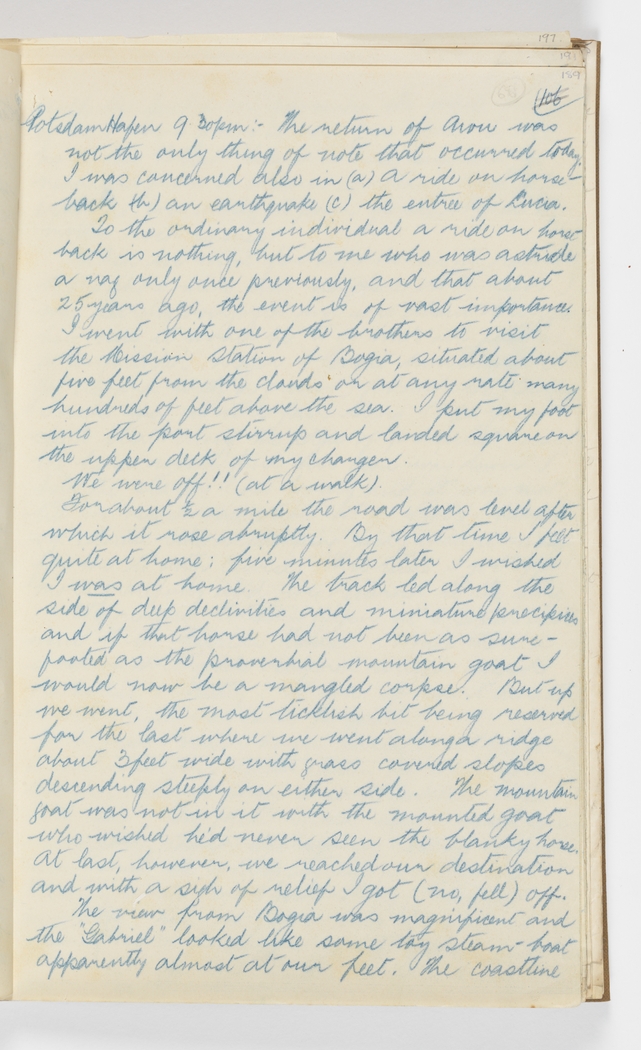 197
189
106
Potsdam Hafen 9.30pm:- The return of Arou was
not the only thing of note that occurred today.
I was concerned also in (a) a ride on horse-
back (b) an earthquake (c) the entree of Lucia.
To the ordinary individual a ride on horse
back is nothing, but to me who was astride
a nag only once previously, and that about
25 years ago, the event is of vast importance.
I went with one of the brothers to visit
the Mission Station of Bogia, situated about
five feet from the clouds or at any rate many
hundreds of feet above the sea. I put my foot
into the port stirrup and landed square on
the upper deck of my charger.
We were off!! (at a walk).
For about ½ a mile the road was level after
which it rose abruptly. By that time I felt
quite at home; five minutes later I wished
I was at home. The track led along the
side of deep declivities and miniature precipices
and if that horse had not been as sure-
footed as the proverbial mountain goat I
would now be a mangled corpse. But up
we went, the most ticklish bit being reserved
for the last where we went along a ridge
about 3 feet wide with grass covered slopes
descending steeply on either side. The mountain
goat was not in it with the mounted goat
who wished he'd never seen the blanky horse.
At last, however, we reached our destination
and with a sigh of relief I got (no, fell) off.
The view from Bogia was magnificent and
the "Gabriel" looked like some toy steam-boat
apparently almost at our feet. The coastline